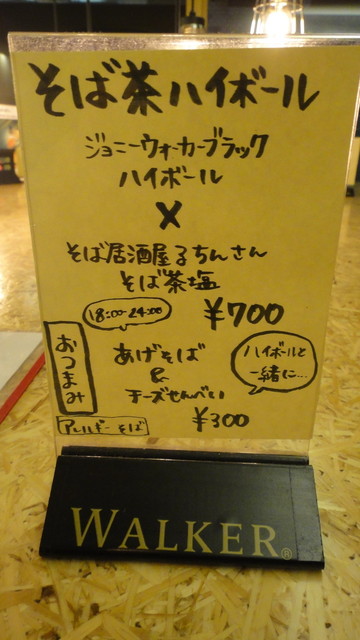 そば茶ハイボール
ジョニーウォーカーブラック
ハイボール
×
そば居酒屋るちんさん
そば茶塩
18:00-24:00
¥700
おつまみ
あげそば
&
チーズせんべい
¥300
ハイボールと
一緒に…
アレルギーそば
WALKER®